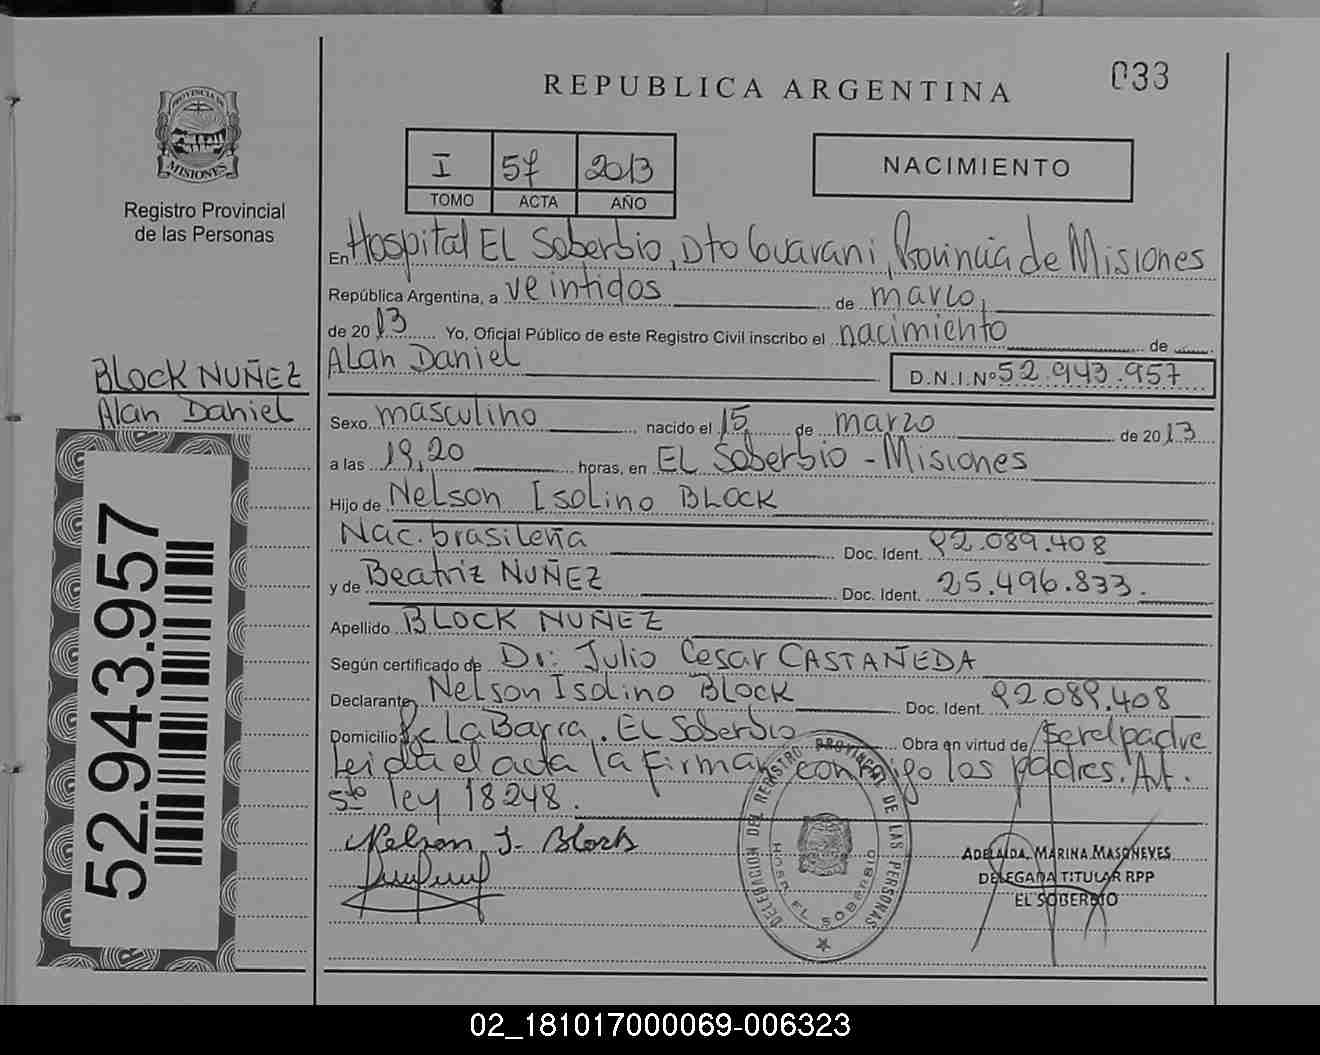 REPUBLICA ARGENTINA
033
PROVINCIA DE
MISIONES
Registro Provincial
de las Personas
I 57 2013
TOMO ACTA AÑO
NACIMIENTO
En Hospital EL Soberbio, Dto Guarani, Provincia de Misiones
República Argentina, a veintidos de marzo,
de 2013 Yo, Oficial Público de este Registro Civil inscribo el nacimiento de
Alan Daniel
D.N.I.Nº 52.943.957
BLOCK NUÑEZ
Alan Daniel
52.943.957
Sexo masculino nacido el 15 de marzo de 2013
a las 19,20 horas, en EL Soberbio - Misiones
Hijo de Nelson Isolino BLOCK
Nac. brasileña Doc. Ident. 92.089.408
y de Beatriz NUÑEZ Doc. Ident. 25.496.833.
Apellido BLOCK NUÑEZ
Según certificado de Dr: Julio Cesar CASTAÑEDA
Declarante Nelson Isolino BLOCK Doc. Ident. 92089.408
Domicilio La Barra. EL Soberbio Obra en virtud de ser el padre
Leida el acta la firman conmigo los padres. Art.
5to ley 18248.
Nelson I. Block
DELEGACION DEL REGISTRO PROVINCIAL DE LAS PERSONAS
HOSP. EL SOBERBIO
ADELAIDA MARINA MASONEVES
DELEGADA TITULAR RPP
EL SOBERBIO
02_181017000069-006323